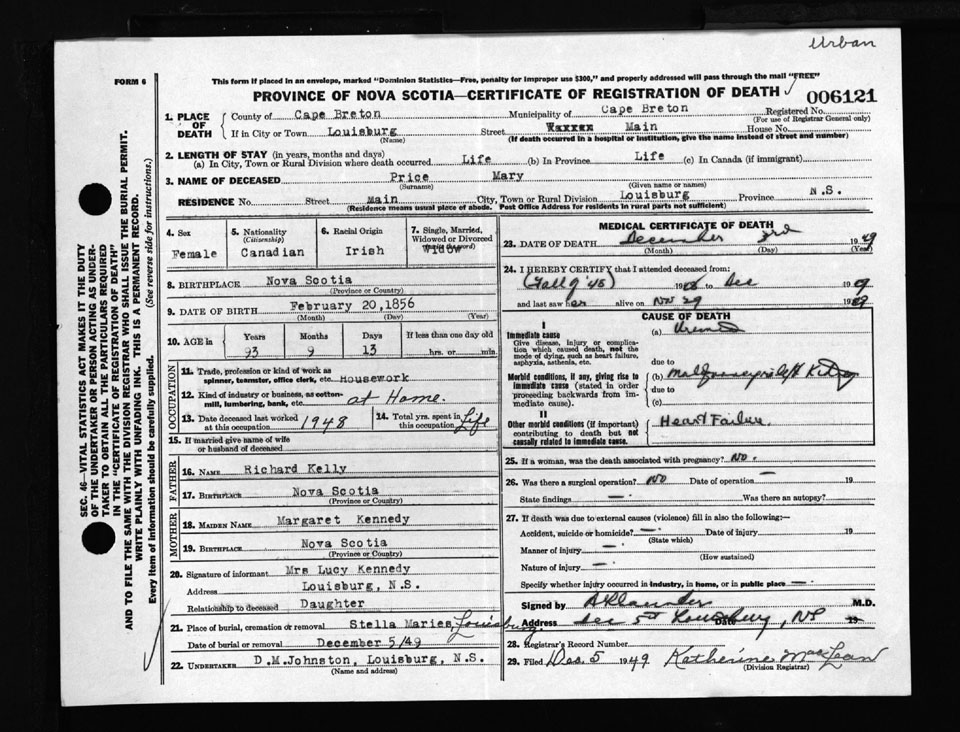 Urban
FORM 6
This form if placed in an envelope, marked "Dominion Statistics—Free, penalty for improper use $300," and properly addressed will pass through the mail "FREE"
PROVINCE OF NOVA SCOTIA—CERTIFICATE OF REGISTRATION OF DEATH
006121
SEC. 46—VITAL STATISTICS ACT MAKES IT THE DUTY
OF THE UNDERTAKER OR PERSON ACTING AS UNDER-
TAKER TO OBTAIN ALL THE PARTICULARS REQUIRED
IN THE "CERTIFICATE OF REGISTRATION OF DEATH"
AND TO FILE THE SAME WITH THE DIVISION REGISTRAR WHO SHALL ISSUE THE BURIAL PERMIT.
WRITE PLAINLY WITH UNFADING INK. THIS IS A PERMANENT RECORD.
Every item of information should be carefully supplied. (See reverse side for instructions.)
1. PLACE OF DEATH
County of Cape Breton Municipality of Cape Breton Registered No.
(For use of Registrar General only)
If in City or Town Louisburg Street Main House No.
(Name) (If death occurred in a hospital or institution, give the name instead of street and number)
2. LENGTH OF STAY (in years, months and days)
(a) In City, Town or Rural Division where death occurred Life (b) In Province Life (c) In Canada (if immigrant)
3. NAME OF DECEASED Price Mary
(Surname) (Given name or names)
RESIDENCE No. Street Main City, Town or Rural Division Louisburg Province N.S.
(Residence means usual place of abode. Post Office Address for residents in rural parts not sufficient)
4. Sex Female
5. Nationality (Citizenship) Canadian
6. Racial Origin Irish
7. Single, Married, Widowed or Divorced Widow
8. BIRTHPLACE Nova Scotia
(Province or Country)
9. DATE OF BIRTH February 20, 1856
(Month) (Day) (Year)
10. AGE in Years 93 Months 9 Days 13 If less than one day old hrs. or min.
OCCUPATION
11. Trade, profession or kind of work as spinner, teamster, office clerk, etc. Housework
12. Kind of industry or business, as cotton-mill, lumbering, bank, etc. at Home.
13. Date deceased last worked at this occupation 1948
14. Total yrs. spent in this occupation Life
15. If married give name of wife or husband of deceased
FATHER
16. NAME Richard Kelly
17. BIRTHPLACE Nova Scotia
(Province or Country)
MOTHER
18. MAIDEN NAME Margaret Kennedy
19. BIRTHPLACE Nova Scotia
(Province or Country)
20. Signature of informant Mrs Lucy Kennedy
Address Louisburg, N.S.
Relationship to deceased Daughter
21. Place of burial, cremation or removal Stella Maries, Louisburg
Date of burial or removal December 5/49
22. UNDERTAKER D.M.Johnston, Louisburg, N.S.
(Name and address)
MEDICAL CERTIFICATE OF DEATH
23. DATE OF DEATH December 3rd 1949
(Month) (Day) (Year)
24. I HEREBY CERTIFY that I attended deceased from:
(Fall of '48) 19 to Dec 19
and last saw her alive on Nov 29 19
CAUSE OF DEATH
I
Immediate cause
Give disease, injury or complication which caused death, not the mode of dying, such as heart failure, asphyxia, asthenia, etc.
(a) Uremia
due to
Morbid conditions, if any, giving rise to immediate cause (stated in order proceeding backwards from immediate cause).
(b) left Kidney
due to
(c)
II
Other morbid conditions (if important) contributing to death but not causally related to immediate cause.
Heart Failure.
25. If a woman, was the death associated with pregnancy? No.
26. Was there a surgical operation? No Date of operation — 19
State findings — Was there an autopsy?
27. If death was due to external causes (violence) fill in also the following:—
Accident, suicide or homicide? — Date of injury 19
(State which)
Manner of injury —
(How sustained)
Nature of injury —
Specify whether injury occurred in industry, in home, or in public place —
Signed by M.D.
Address Dec 5th Louisburg, NS Date 19
28. Registrar's Record Number
29. Filed Dec. 5 1949 Katherine MacLean
(Division Registrar)